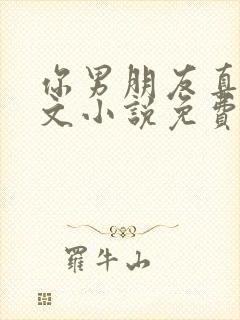 你男朋友真
文小説免費
羅牛山